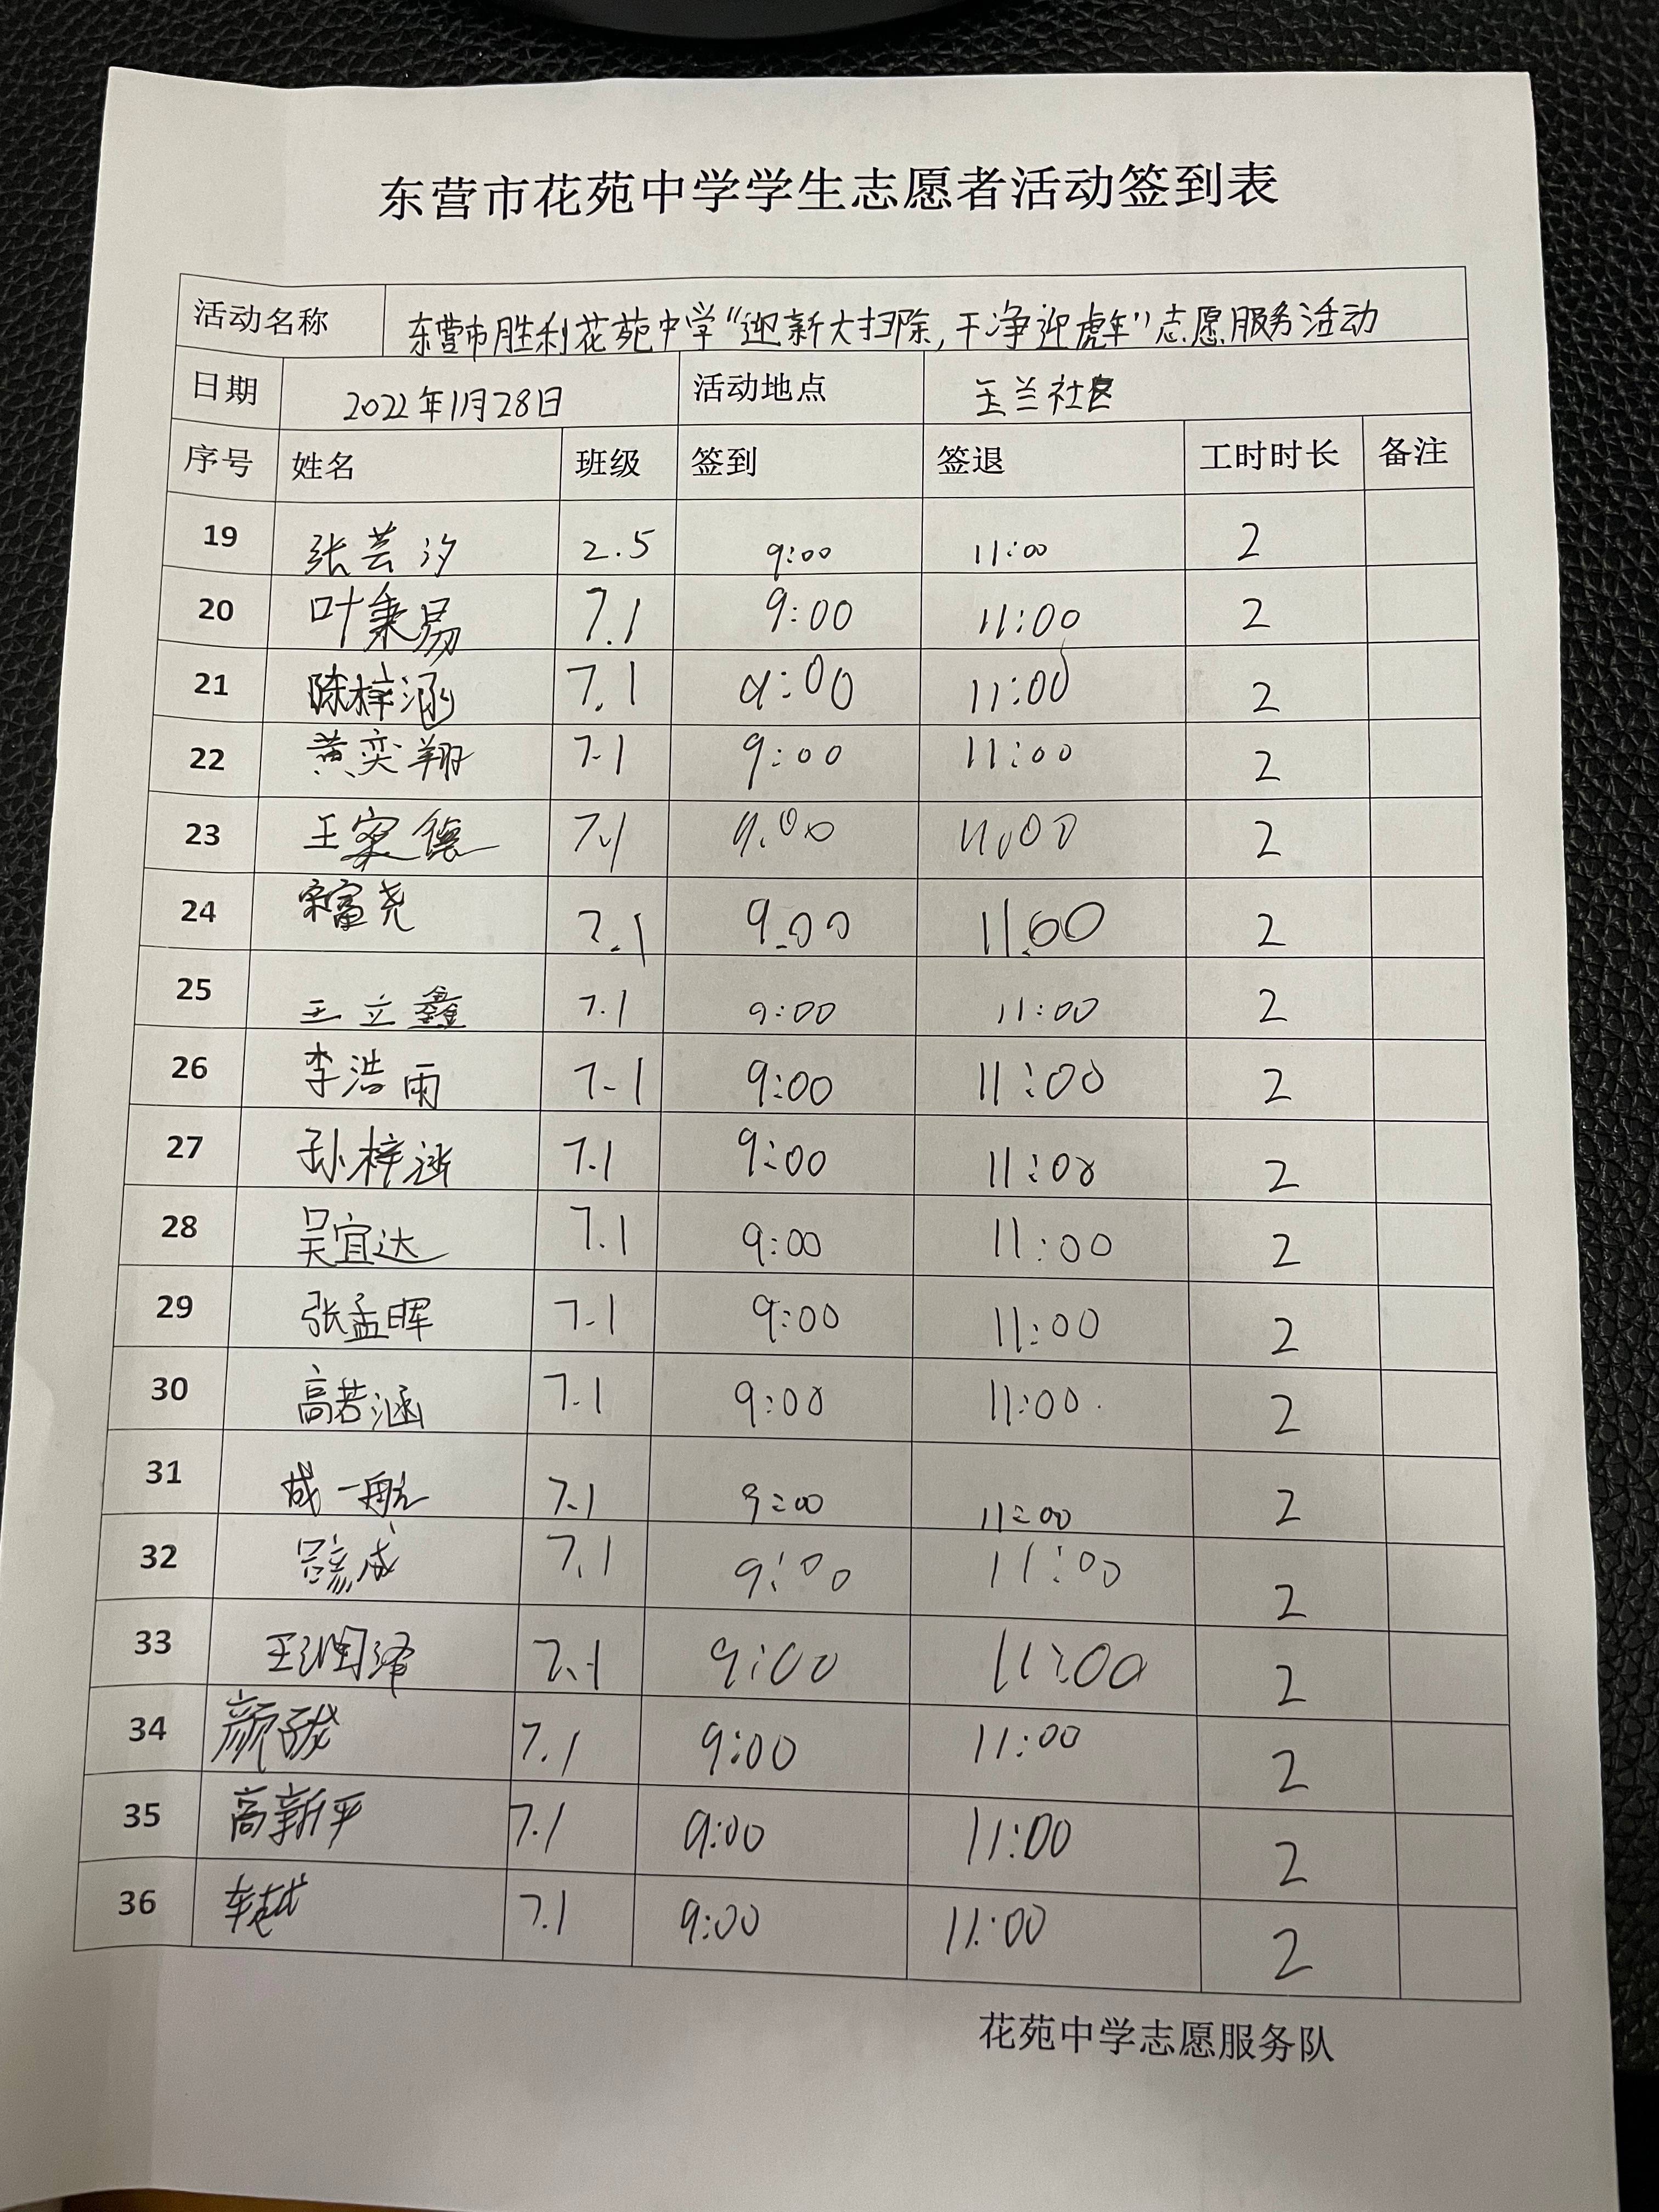 东营市花苑中学学生志愿者活动签到表
活动名称 东营市胜利花苑中学“迎新大扫除,干净迎虎年”志愿服务活动
日期 2022年1月28日 活动地点 玉兰社区
序号 姓名 班级 签到 签退 工时时长 备注
19 张芸汐 2.5 9:00 11:00 2
20 叶秉易 7.1 9:00 11:00 2
21 陈梓涵 7.1 9:00 11:00 2
22 黄奕翔 7.1 9:00 11:00 2
23 王家德 7.1 9:00 11:00 2
24 宋富尧 7.1 9.00 11.00 2
25 王立鑫 7.1 9:00 11:00 2
26 李浩雨 7-1 9:00 11:00 2
27 孙梓涵 7.1 9:00 11:00 2
28 吴宜达 7.1 9:00 11:00 2
29 张孟晖 7-1 9:00 11:00 2
30 高若涵 7-1 9:00 11:00 2
31 成一航 7.1 9:00 11:00 2
32 7.1 9:00 11:00 2
33 王润泽 7.1 9:00 11:00 2
34 颜 7.1 9:00 11:00 2
35 高新平 7.1 9:00 11:00 2
36 车越 7.1 9:00 11:00 2
花苑中学志愿服务队